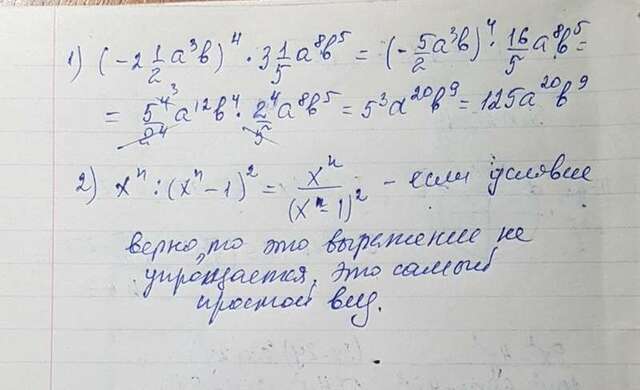 1) (-2 1/2 a³b)⁴ · 3 1/5 a⁸b⁵ = (- 5/2 a³b)⁴ · 16/5 a⁸b⁵ =
= 5⁴ ³/2⁴ a¹²b⁴ · 2⁴/5 a⁸b⁵ = 5³a²⁰b⁹ = 125a²⁰b⁹
2) xⁿ : (xⁿ - 1)² = xⁿ/(xⁿ - 1)² - если условие
верно, то это выражение не
упрощается, это самый
простой вид.